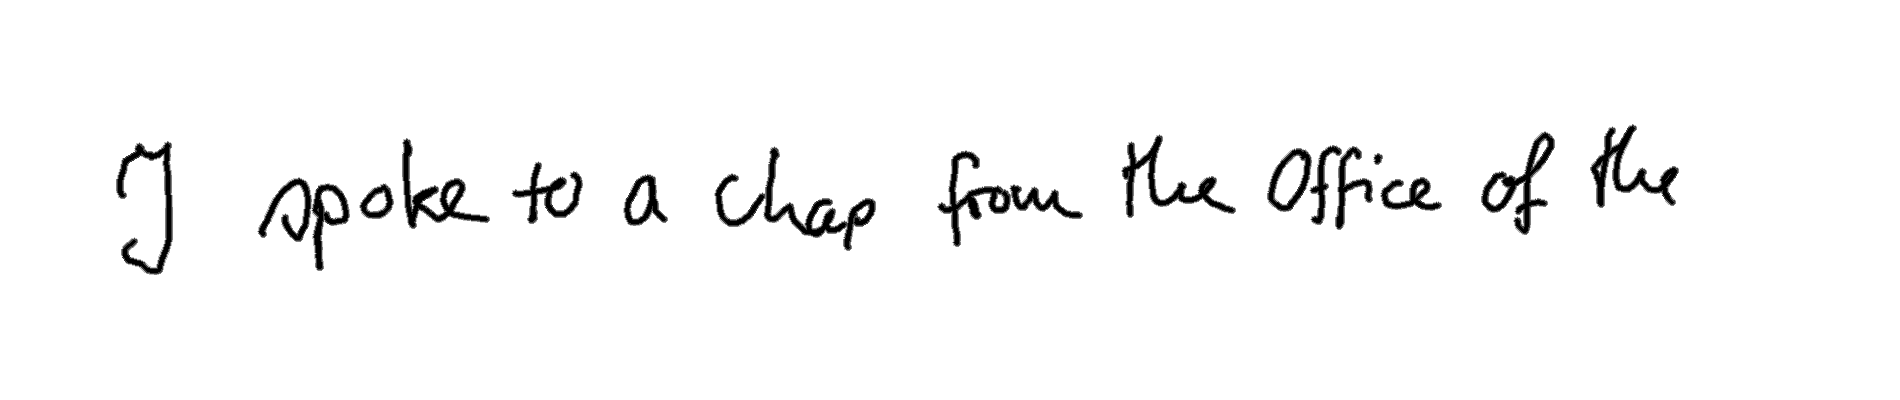 I spoke to a chap from the Office of the